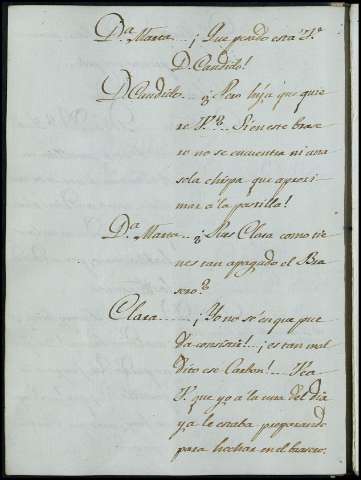 Dª Marta....¡ Que pesado está V.
D. Candido!
D. Candido....¿ Pero hija que quie
re V.?... Si en este brase
ro no se encuentra ni una
sola chispa que aproxi
mar á la pastilla!
Dª Marta...¿ Pues Clara como tie
nes tan apagado el Bra
sero?
Clara......¡ Yo no sé en que pue
da consistir!...¡ es tan mal
dito ese Carbon!... Vea
V. que yo á la una del dia
ya le estaba preparando
para hechar en el brasero.